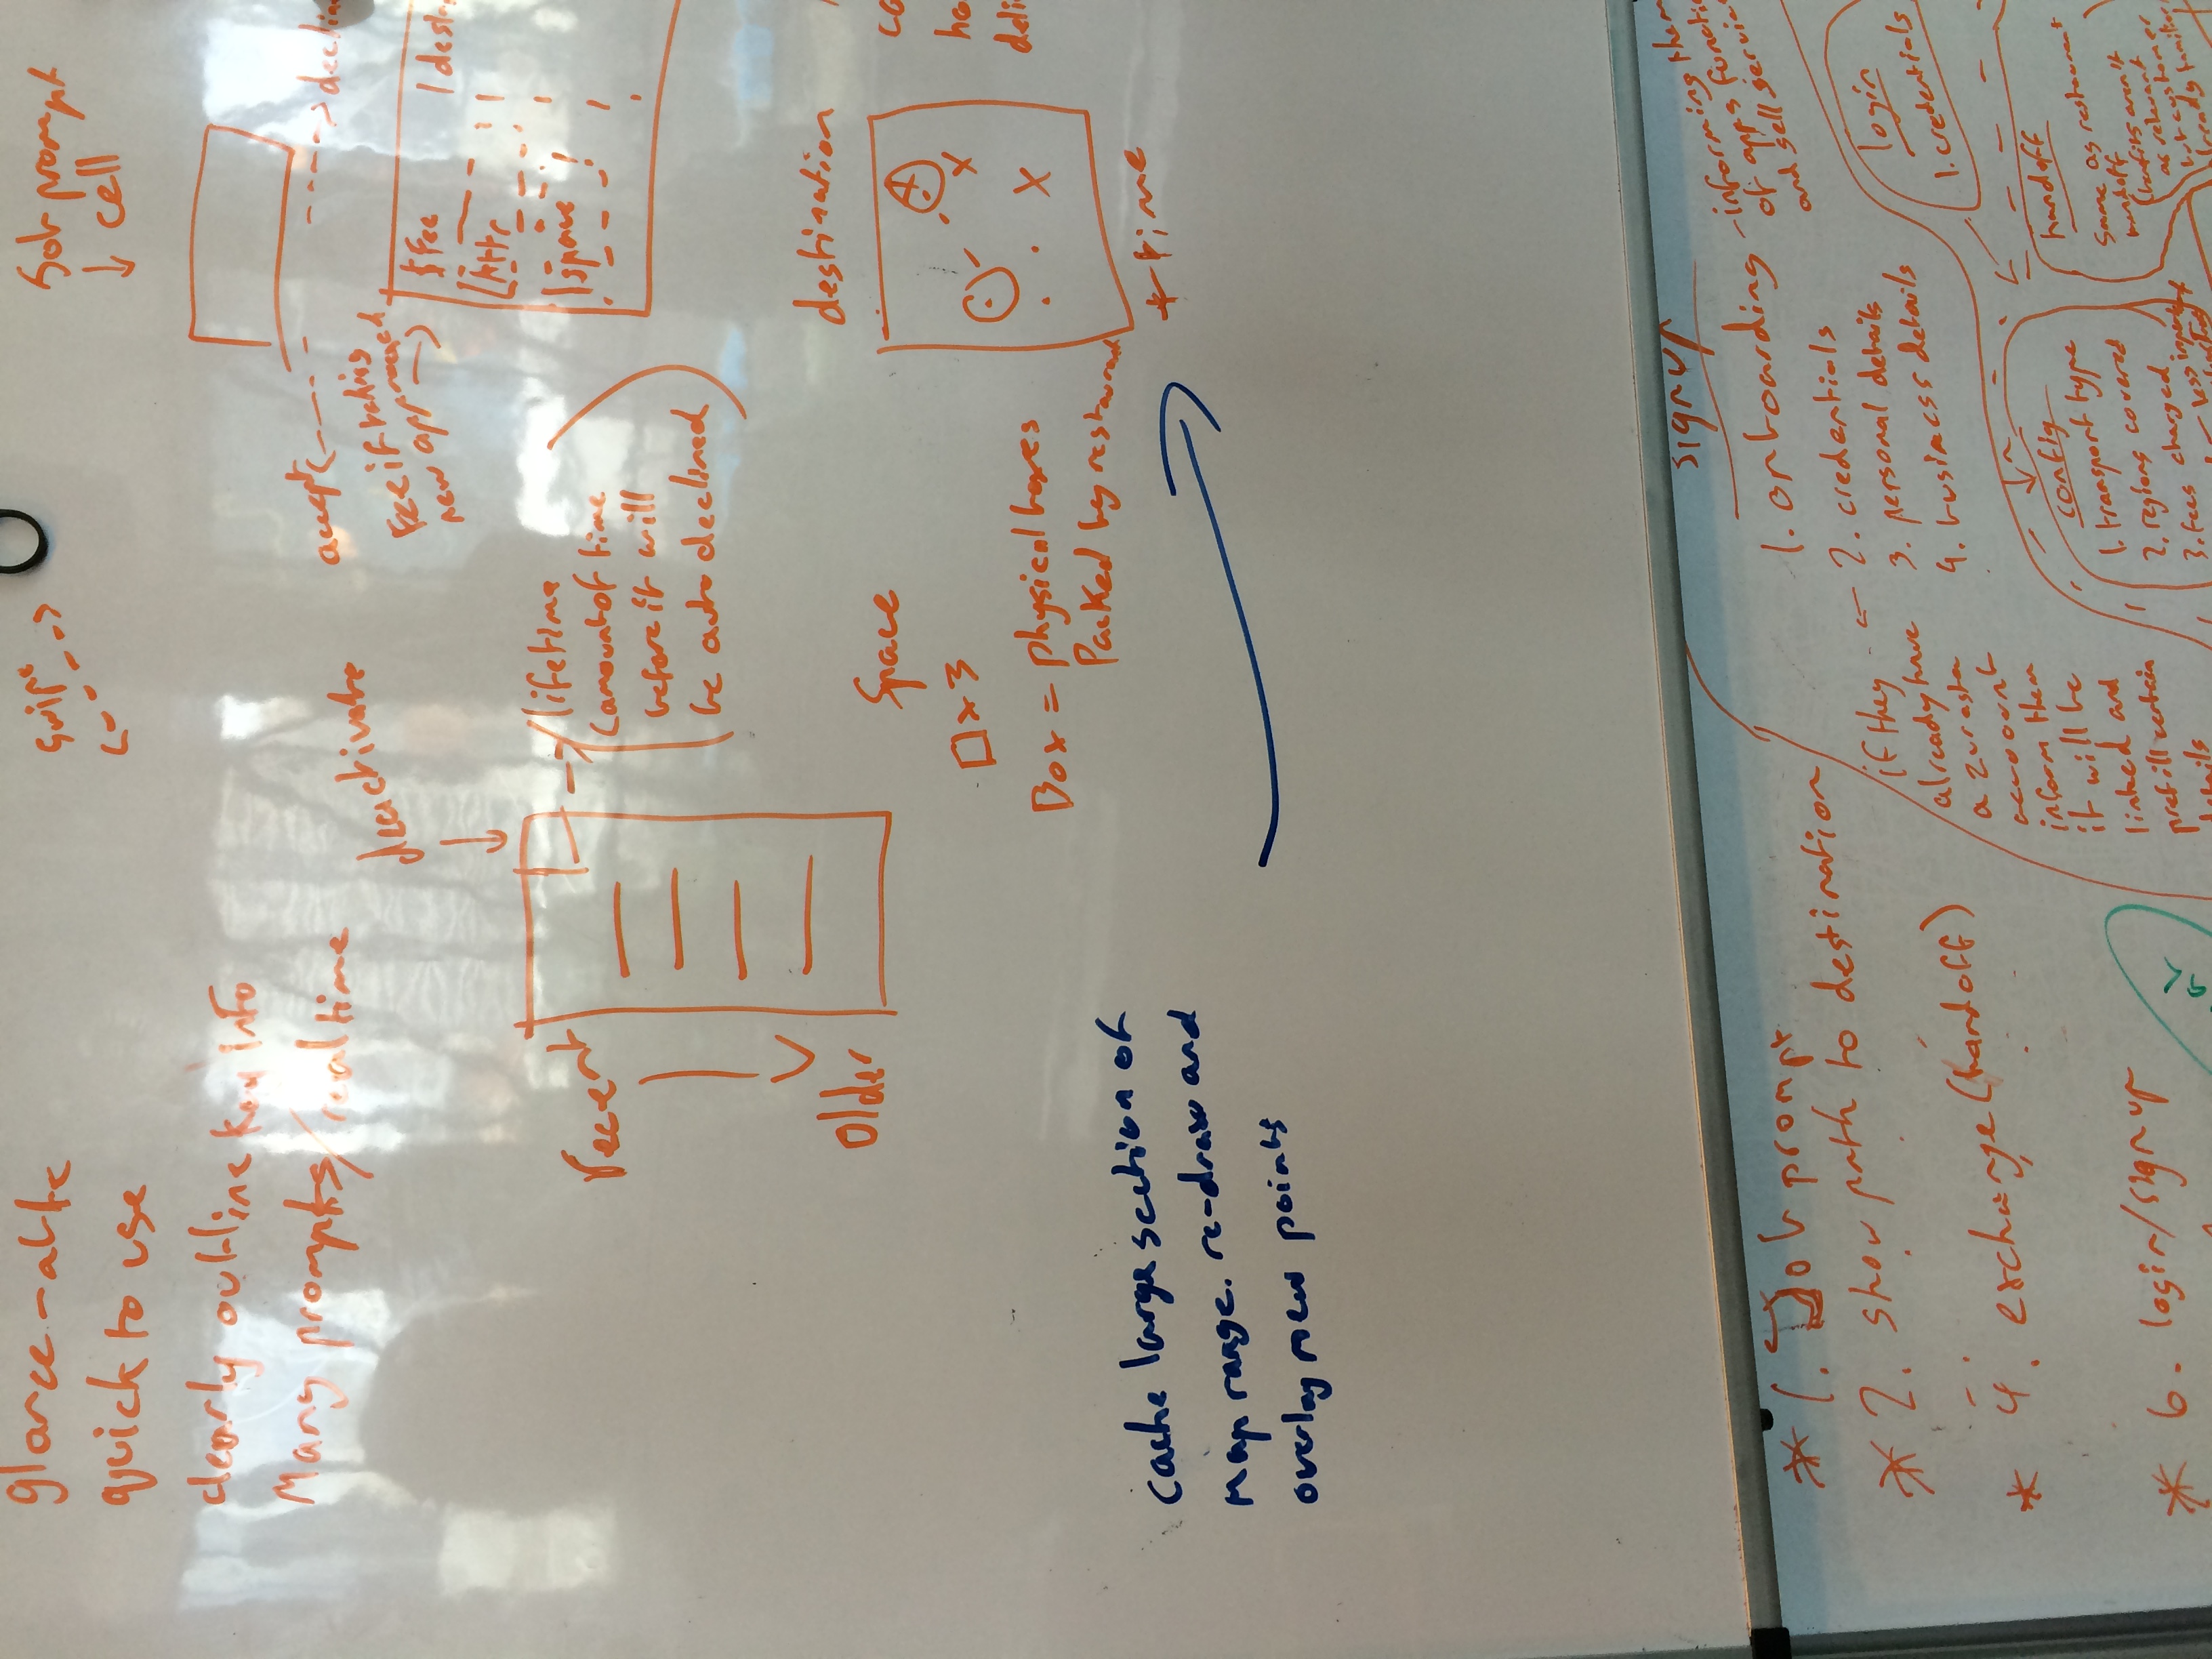 glance-able
quick to use
clearly outline key info
Many prompts/realtime
swipe
Job prompt
cell
accept
declin
Fee if taking
new approach
$Fee
dest
Attr
space
deactivate
recent
Older
lifetime
(amount of time
before it will
be auto declined
)
Space
□ x 3
Box = physical boxes
Packed by restaurant
destination
* time
co
ho
deli
cache large section of
Map range. re-draw and
overlay new points
* 1. Job prompt
* 2. show path to destination
* 4. exchange (handoff)
* 6. login/signup
signup
1. onboarding - informing them
of apps functio
and sell servic
2. credentials
3. personal details
4. business details
if they
already have
a
account
inform them
it will be
linked and
prefill certain
details
login
1. credentials
config
1. transport type
2. regions covered
3. fees charged
less important
handoff
same as restaurant
handoff
(benefits aren't
as relevant
but customer
already familiar